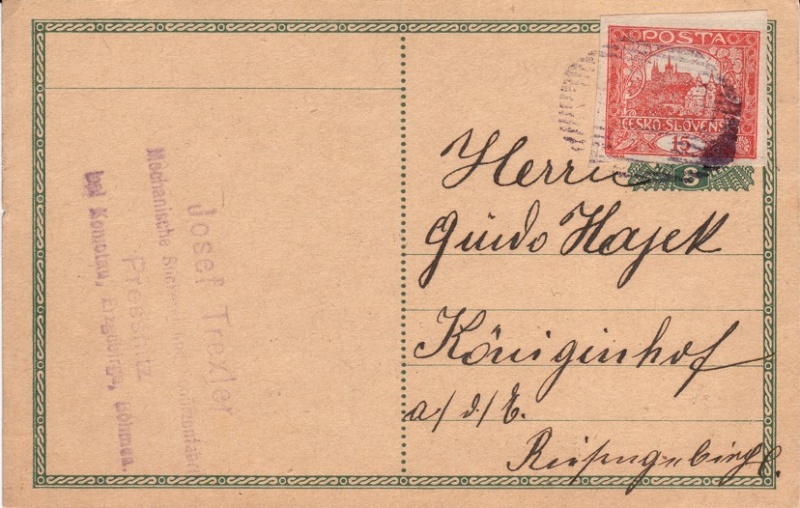 POSTA
ČESKO-SLOVENSKÁ
15
Herrn
Guido Hajek
Königinhof
a/d/E.
Riesengebirge.
Josef Trexler
Mechanische
Pressnitz
bei Komotau, Erzgebirge, Böhmen.